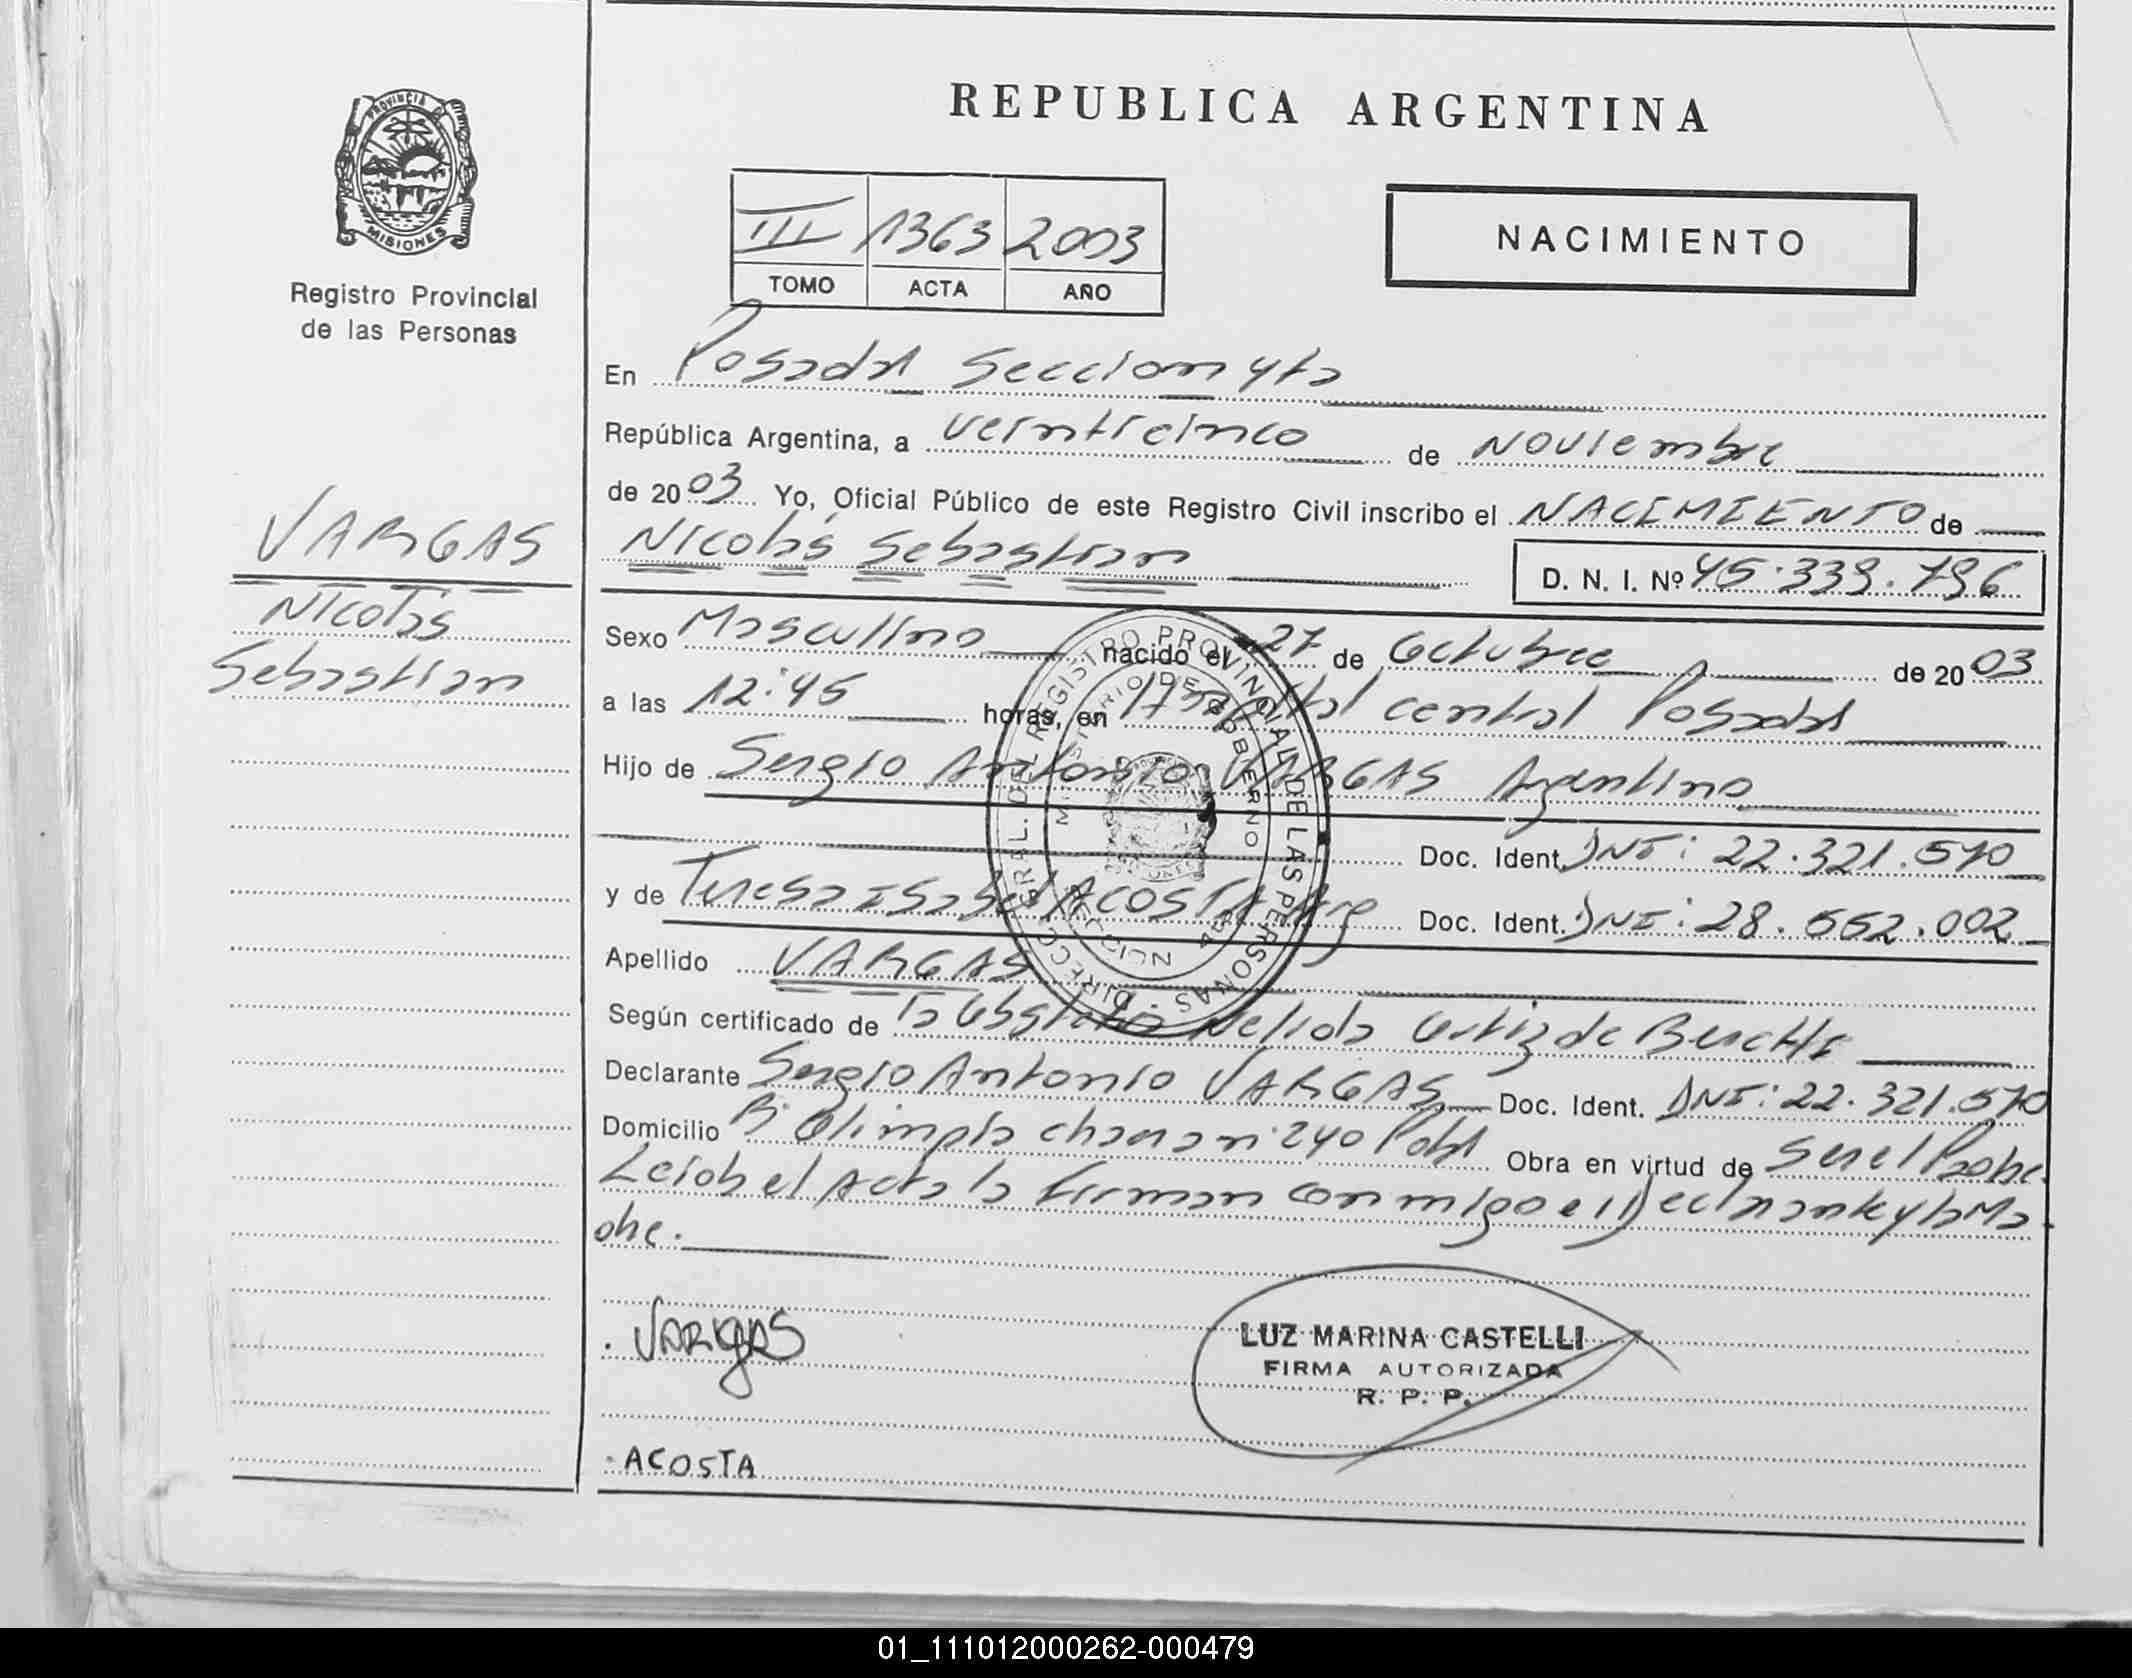 REPUBLICA ARGENTINA
PROVINCIA
MISIONES
Registro Provincial
de las Personas
III 1363 2003
TOMO ACTA AÑO
NACIMIENTO
En Posadas Seccion 4ta
República Argentina, a veinticinco de Noviembre
de 2003 Yo, Oficial Público de este Registro Civil inscribo el NACIMIENTO de
Nicolás Sebastian D. N. I. Nº 45.339.796
VARGAS
Nicolás
Sebastian
Sexo Masculino nacido el 27 de Octubre de 2003
a las 12:45 horas, en Hospital central Posadas
Hijo de Sergio Antonio VARGAS Argentino
Doc. Ident. DNI: 22.321.570
y de Teresa Isabel ACOSTA Arg Doc. Ident. DNI: 28.552.002
Apellido VARGAS
Según certificado de la Obstetra Nelida Ortiz de
Declarante Sergio Antonio VARGAS Doc. Ident. DNI: 22.321.570
Domicilio Bº Olimpia 240 Obra en virtud de Ser el Padre.
Leida el Acta la firman conmigo el Declarante y la Ma-
dre.
DIRECC. GRAL. DEL REGISTRO PROVINCIAL DE LAS PERSONAS
MINISTERIO DE GOBIERNO
VARGAS
LUZ MARINA CASTELLI
FIRMA AUTORIZADA
R. P. P.
ACOSTA
01_111012000262-000479